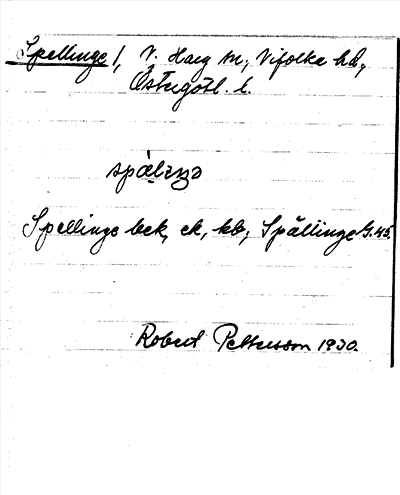 Spellinge 1, V. Harg sn, Vifolka hd,
Östergötl. l.
spä̀lıŋə
Spellinge bek, ek, kb; Spällinge G. 45.
Robert Pettersson 1930.